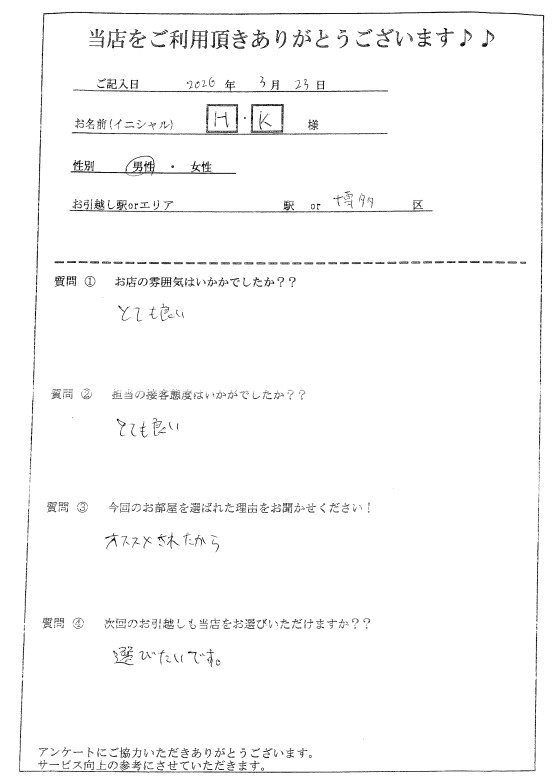 当店をご利用頂きありがとうございます♪♪
ご記入日 2026 年 3 月 23 日
お名前(イニシャル) H・K 様
性別 男性 ・ 女性
お引越し駅orエリア 駅 or 博多 区
質問 ① お店の雰囲気はいかかでしたか??
とても良い
質問 ② 担当の接客態度はいかがでしたか??
とても良い
質問 ③ 今回のお部屋を選ばれた理由をお聞かせください!
オススメされたから
質問 ④ 次回のお引越しも当店をお選びいただけますか??
選びたいです。
アンケートにご協力いただきありがとうございます。
サービス向上の参考にさせていただきます。